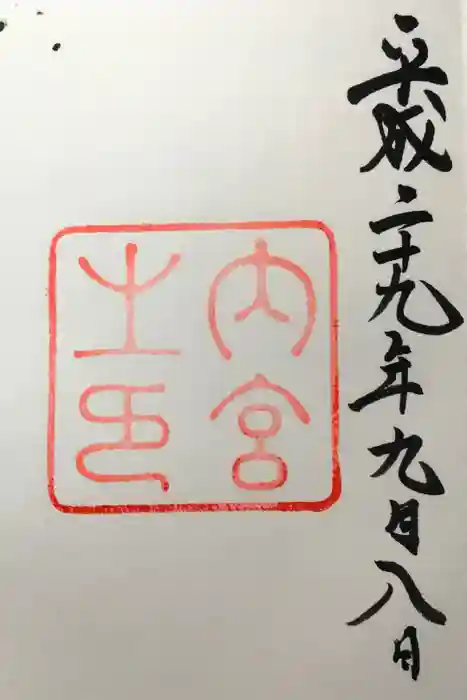 平成二十九年九月八日
内宮
之印